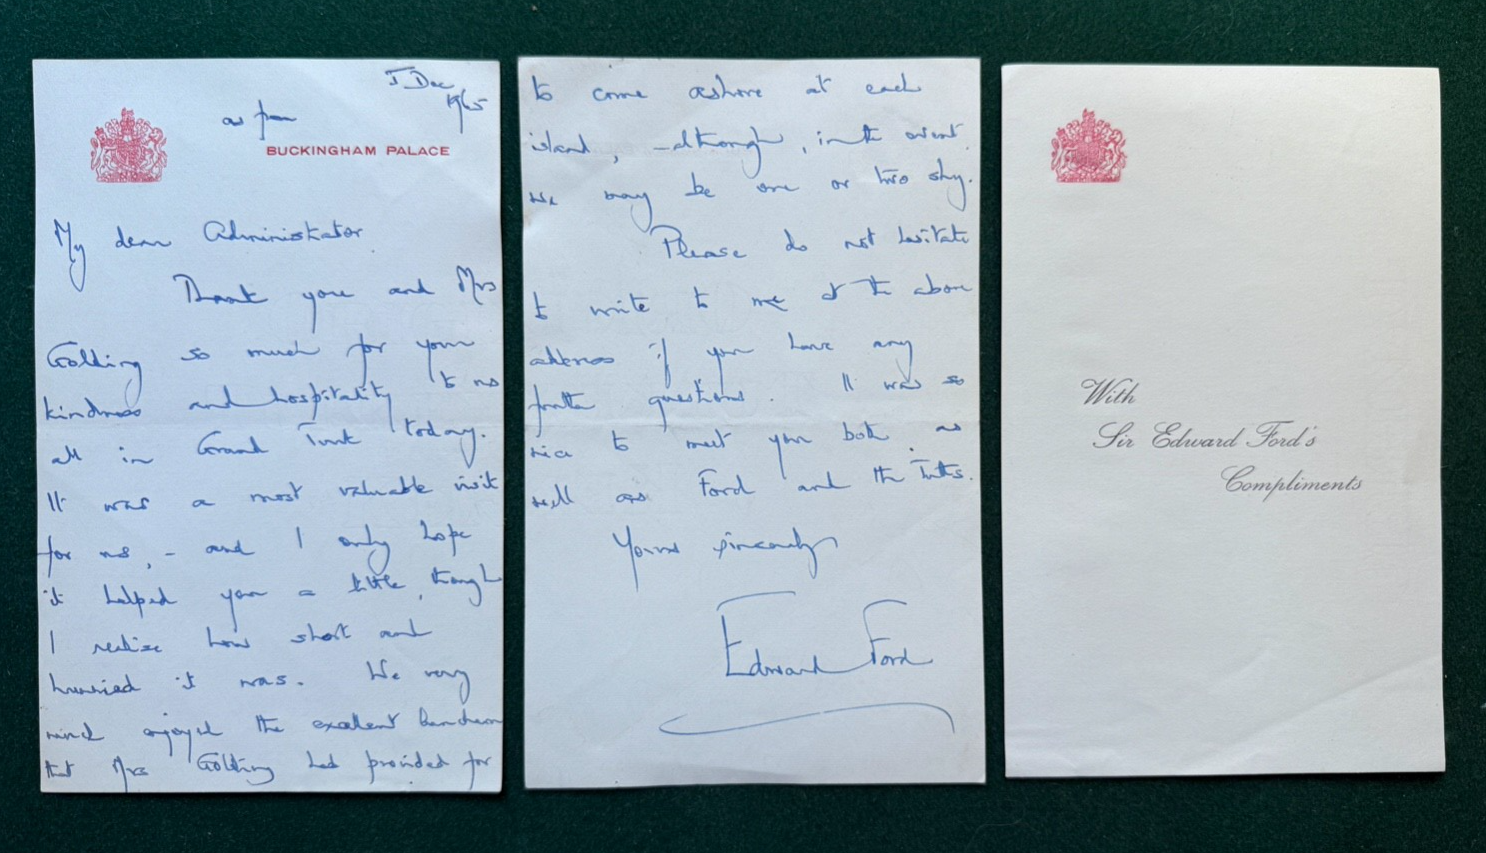 5 Dec
1965
as from
BUCKINGHAM PALACE
My dear Administrator
Thank you and Mrs
Golding so much for your
kindness and hospitality to us
all in Grand Turk today.
It was a most valuable visit
for us, - and I only hope
it helped you a little, though
I realise how short and
hurried it was. We very
much enjoyed the excellent luncheon
that Mrs Golding had provided for
to come ashore at each
island, - although, in the event,
we may be one or two shy.
Please do not hesitate
to write to me at the above
address if you have any
further questions. It was so
nice to meet you both as
well as Ford and the
Yours sincerely
Edward Ford
With
Sir Edward Ford's
Compliments